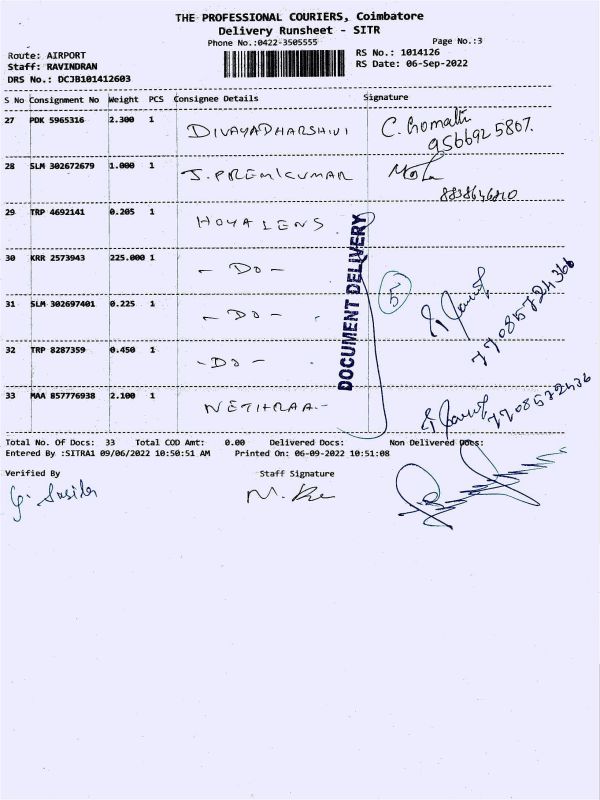 THE PROFESSIONAL COURIERS, Coimbatore
Delivery Runsheet - SITR
Phone No.:0422-3505555
Page No.:3
Route: AIRPORT
RS No.: 1014126
Staff: RAVINDRAN
RS Date: 06-Sep-2022
DRS No.: DCJB101412603
S No Consignment No Weight PCS Consignee Details Signature
27 PDK 5965316 2.300 1 DIVAYADHARSHINI C. Gomathi
9566925807.
28 SLM 302672679 1.000 1 J. PREMKUMAR
8838646810
29 TRP 4692141 0.205 1 HOYA LENS
30 KRR 2573943 225.000 1 - DO -
31 SLM 302697401 0.225 1 - DO -
32 TRP 8287359 0.450 1 - DO -
33 MAA 857776938 2.100 1 NETHRAA -
DOCUMENT DELIVERY
5
Total No. Of Docs: 33 Total COD Amt: 0.00 Delivered Docs: Non Delivered Docs:
Entered By :SITRA1 09/06/2022 10:50:51 AM Printed On: 06-09-2022 10:51:08
Verified By Staff Signature